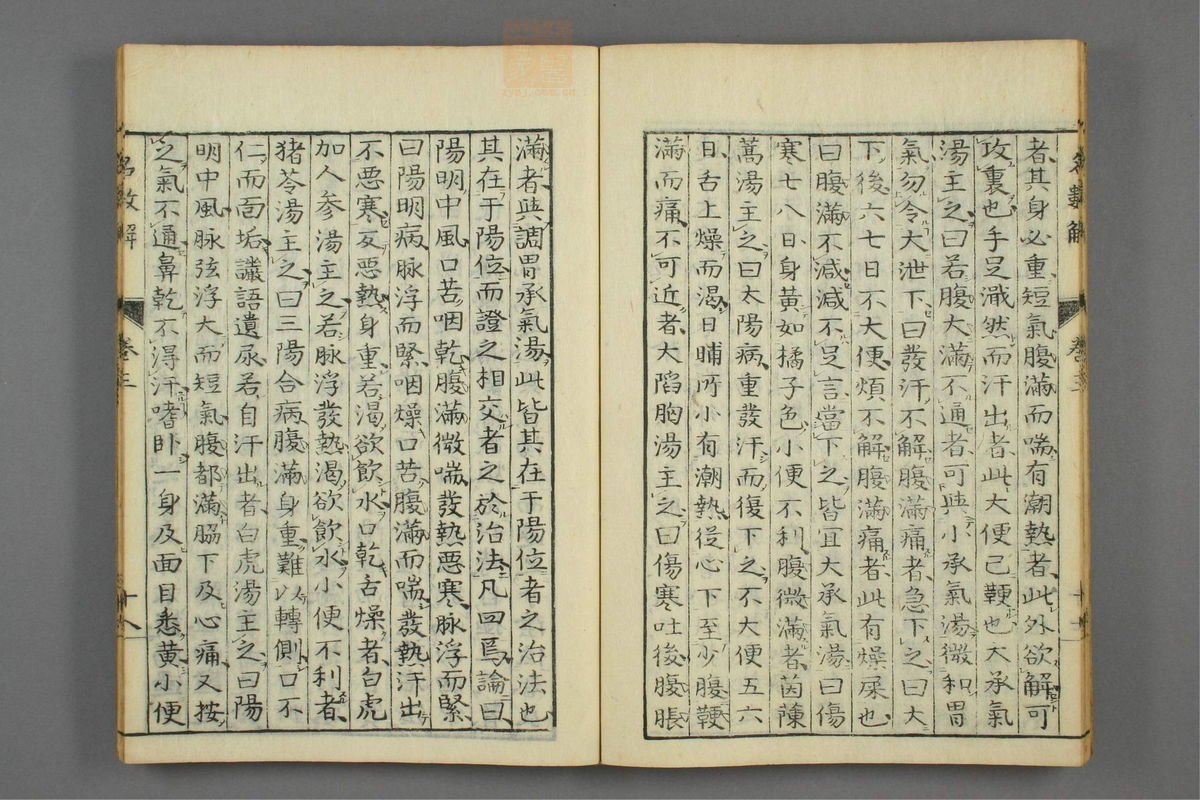 者其身必重短氣腹滿而喘有潮熱者此外欲解可
攻裏也手足濈然而汗出者此大便已鞕也大承氣
湯主之曰若腹大滿不通者可與小承氣湯微和胃
氣勿令大泄下曰發汗不解腹滿痛者急下之曰大
下後六七日不大便煩不解腹滿痛者此有燥屎也
曰腹滿不減減不足言當下之皆宜大承氣湯曰傷
寒七八日身黃如橘子色小便不利腹微滿者茵蔯
蒿湯主之曰太陽病重發汗而復下之不大便五六
日舌上燥而渴日晡所小有潮熱從心下至少腹鞕
滿而痛不可近者大陷胸湯主之曰傷寒吐後腹脹
滿者與調胃承氣湯此皆其在于陽位者之治法也
其在于陽位而證之相交者之於治法凡四焉論曰
陽明中風口苦咽乾腹滿微喘發熱惡寒脉浮而緊
曰陽明病脉浮而緊咽燥口苦腹滿而喘發熱汗出
不惡寒反惡熱身重若渴欲飲水口乾舌燥者白虎
加人參湯主之若脉浮發熱渴欲飲水小便不利者
猪苓湯主之曰三陽合病腹滿身重難以轉側口不
仁而面垢讝語遺尿若自汗出者白虎湯主之曰陽
明中風脉弦浮大而短氣腹都滿脇下及心痛又按
之氣不通鼻乾不得汗嗜卧一身及面目悉黃小便
名數解
卷三
十八